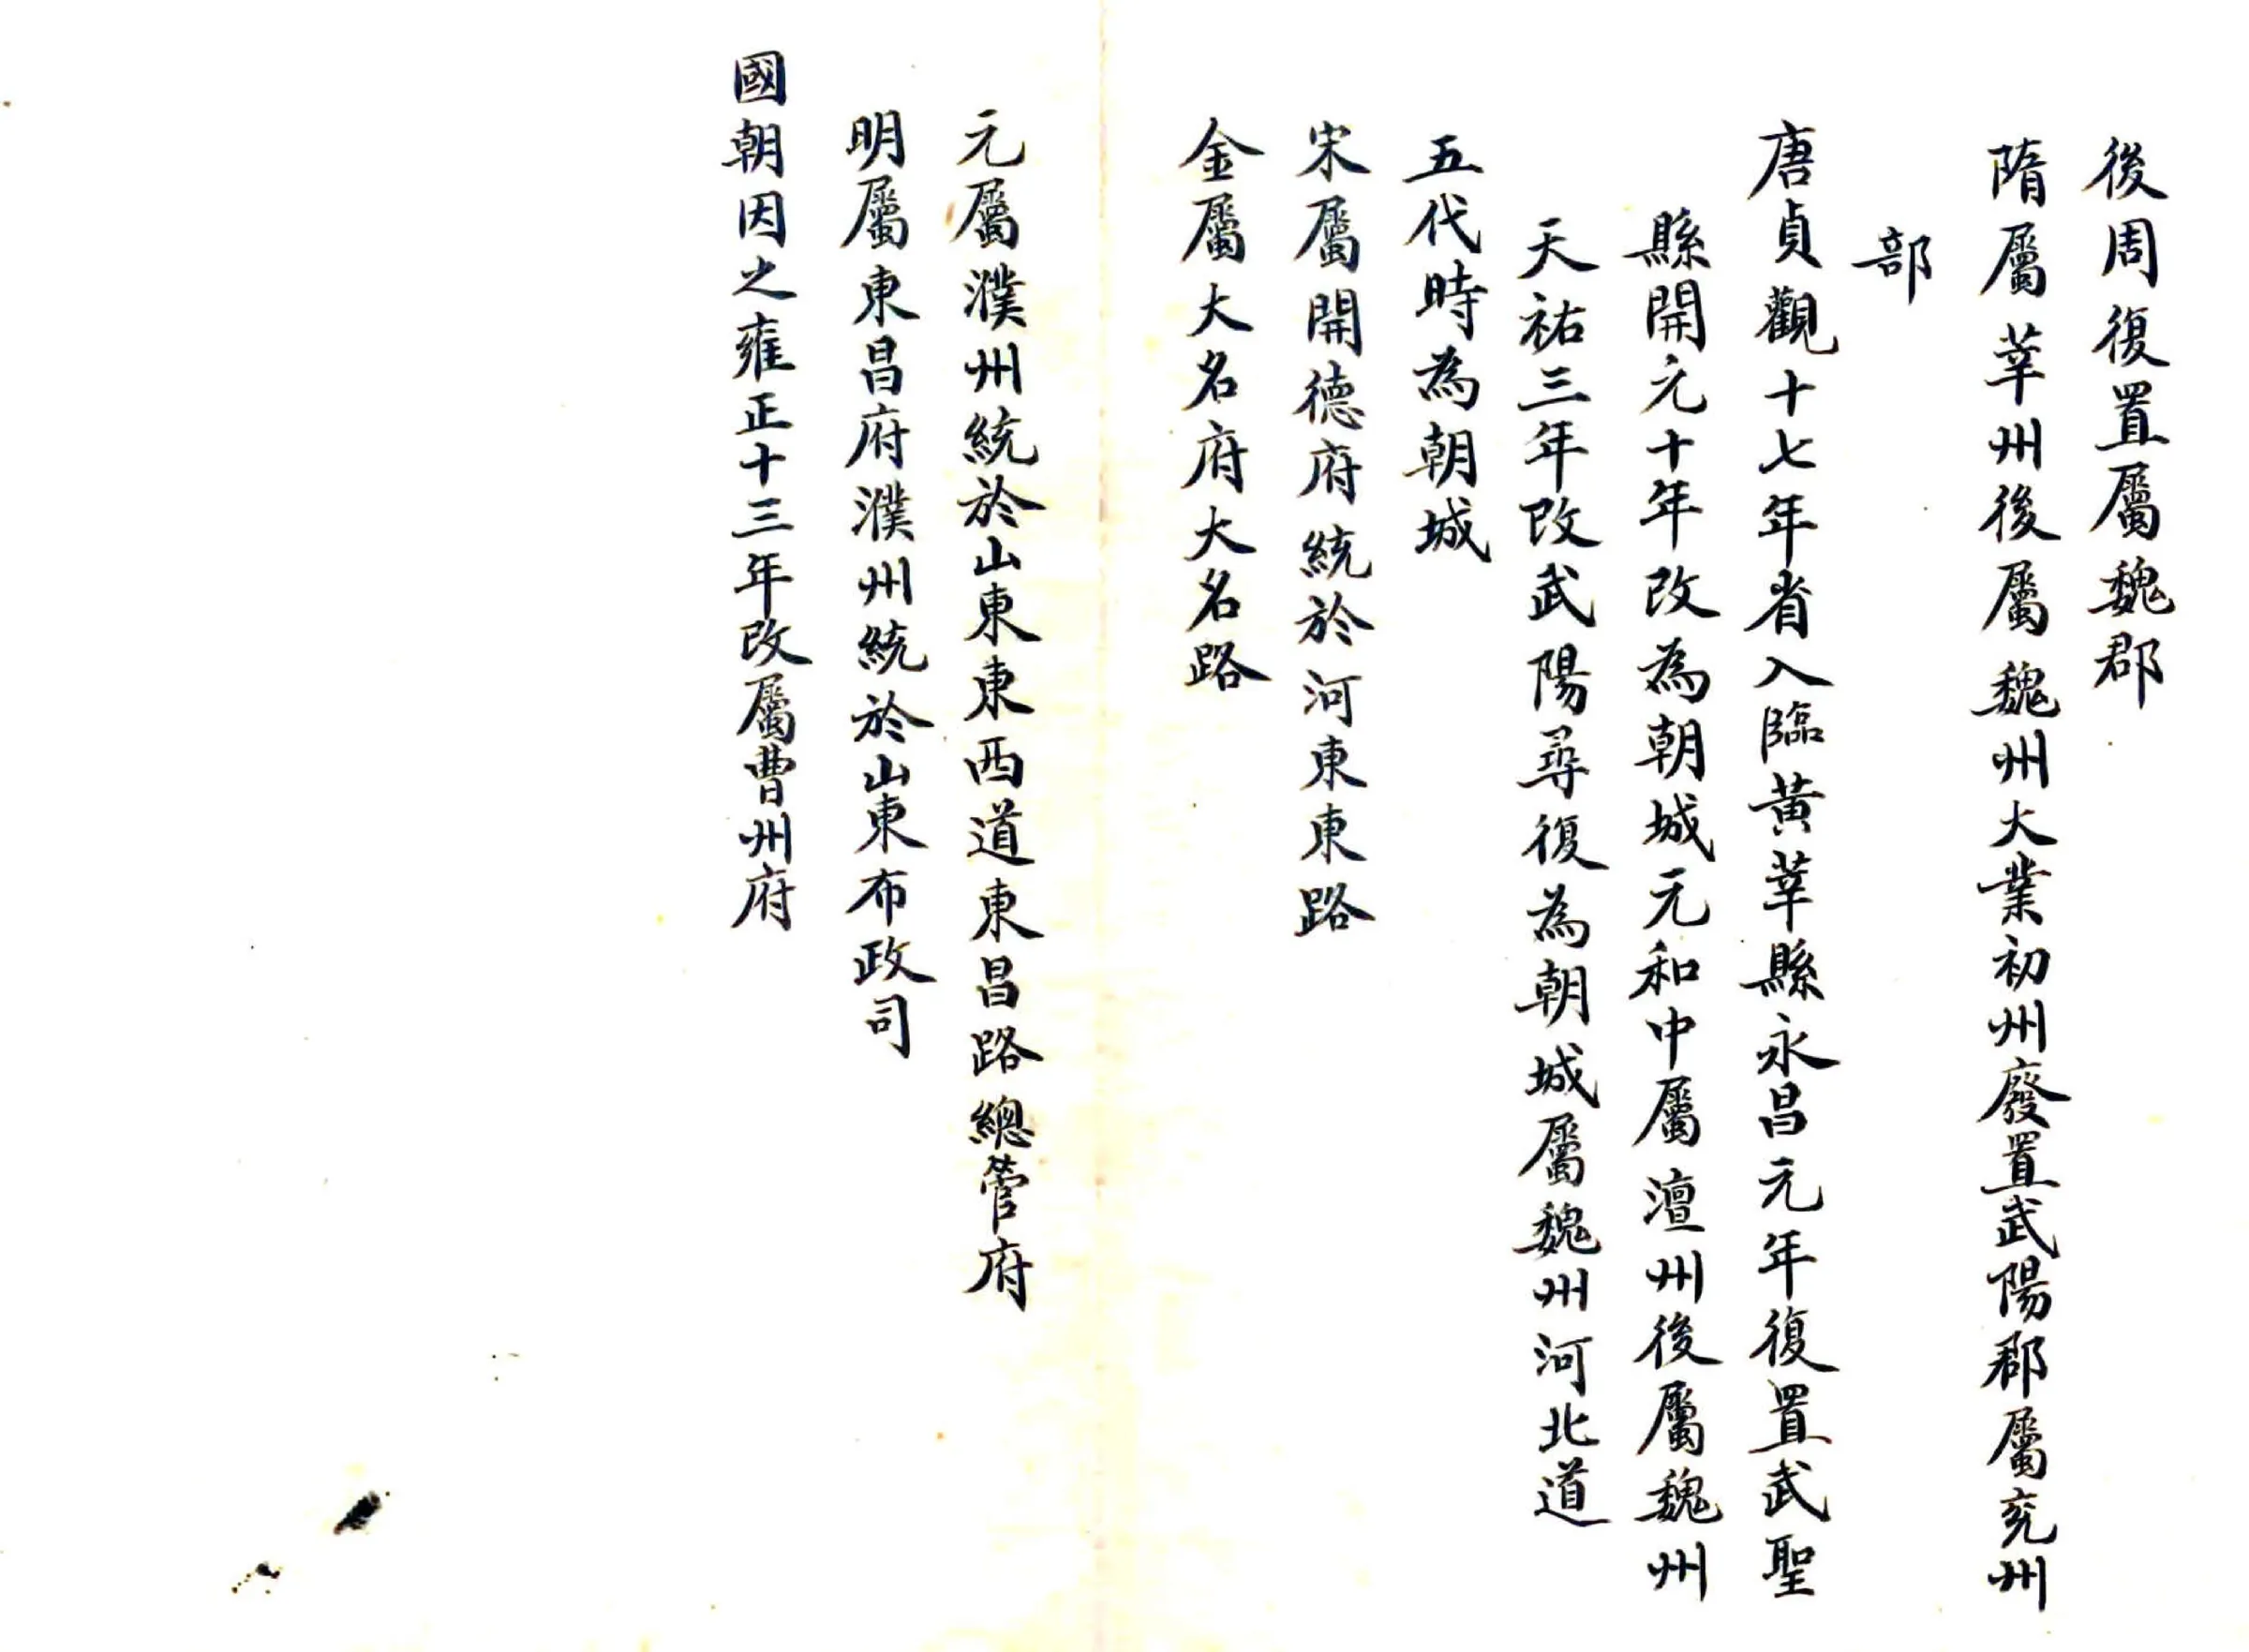 後周復置屬魏郡
隋屬莘州後屬魏州大業初州廢置武陽郡屬兗州
部
唐貞觀十七年省入臨黃莘縣永昌元年復置武聖
縣開元十年改為朝城元和中屬澶州後屬魏州
天祐三年改武陽尋復為朝城屬魏州河北道
五代時為朝城
宋屬開德府統於河東東路
金屬大名府大名路
元屬濮州統於山東東西道東昌路總管府
明屬東昌府濮州統於山東布政司
國朝因之雍正十三年改屬曹州府